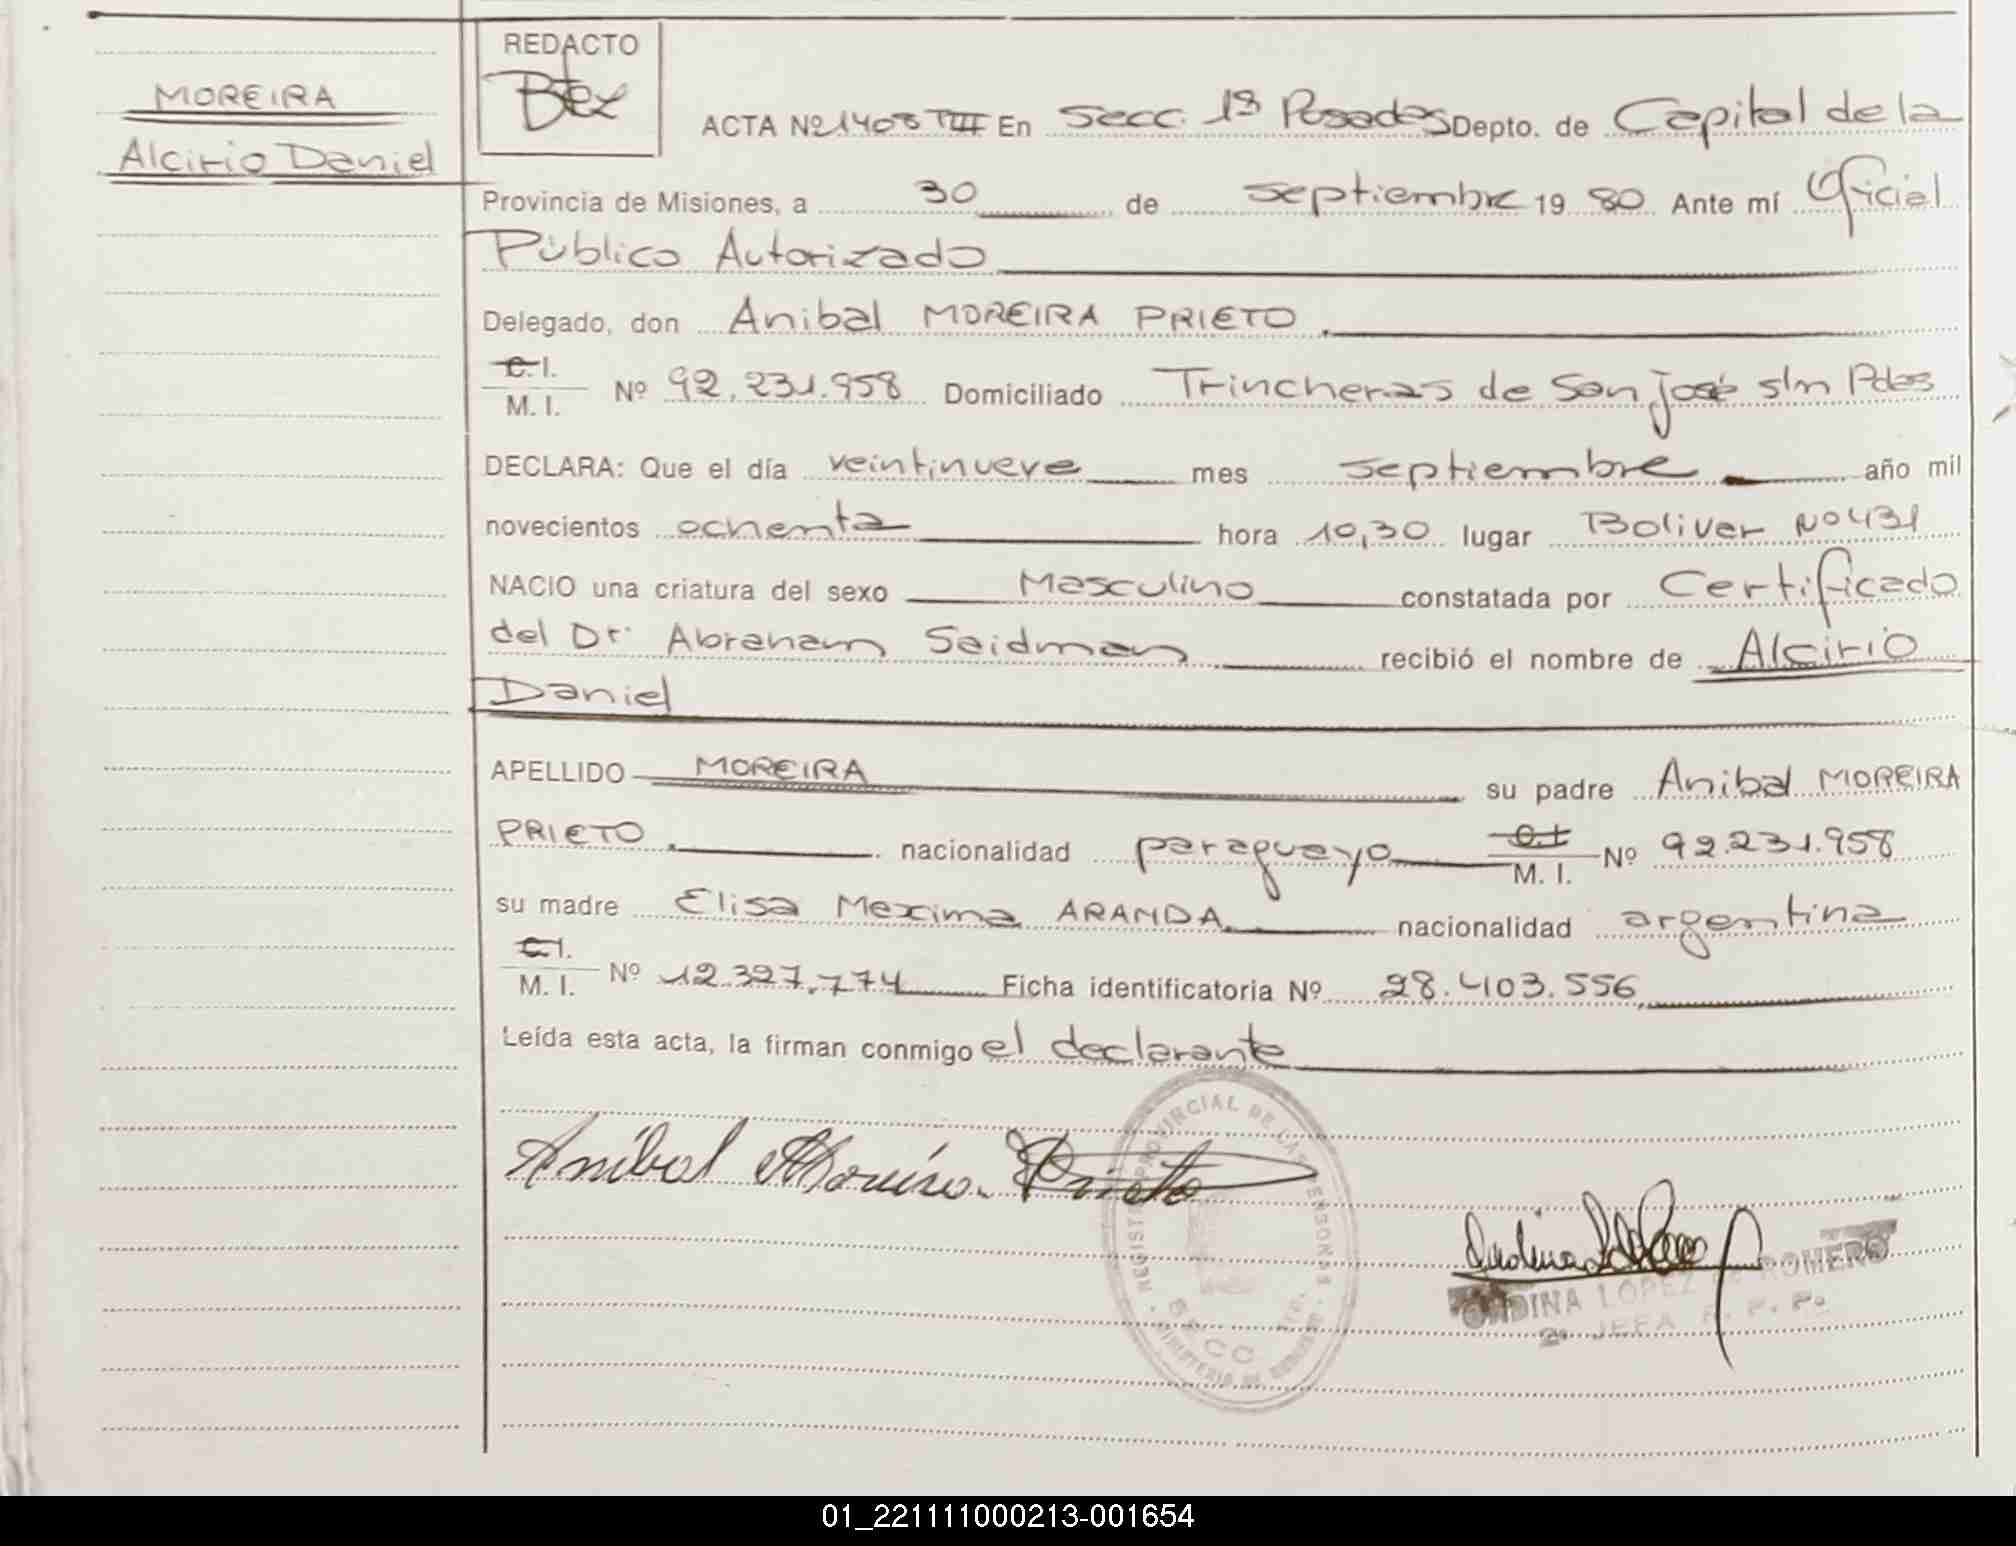 MOREIRA
Alcirio Daniel
REDACTO
ACTA Nº 1408 TIII En Secc. 1ª Posadas Depto. de Capital de la
Provincia de Misiones, a 30 de septiembre 19 80 Ante mí Oficial
Público Autorizado
Delegado, don Anibal MOREIRA PRIETO.
C. I.
M. I. Nº 92.231.958 Domiciliado Trincheras de San José s/n Pdas
DECLARA: Que el día veintinueve mes septiembre año mil
novecientos ochenta hora 10,30 lugar Bolivar Nº 431
NACIO una criatura del sexo Masculino constatada por Certificado
del Dr. Abraham Saidman recibió el nombre de Alcirio
Daniel
APELLIDO MOREIRA su padre Anibal MOREIRA
PRIETO. nacionalidad paraguayo C. I. M. I. Nº 92.231.958
su madre Elisa Maxima ARANDA nacionalidad argentina
C. I.
M. I. Nº 12.327.774 Ficha identificatoria Nº 28.403.556
Leída esta acta, la firman conmigo el declarante
Anibal Moreira Prieto
REGISTRO PROVINCIAL DE LAS PERSONAS
SECC
ONDINA LOPEZ ROMERO
2º JEFA R. P. P.
01_221111000213-001654